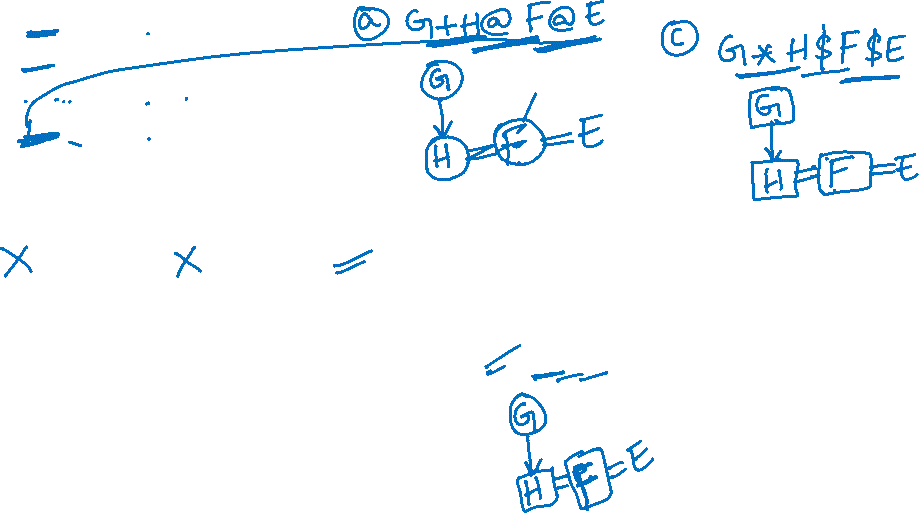 ⓐ G+H@F@E
ⓒ G*H$F$E
G
H = F = E
G
H = F = E
G
H = F = E